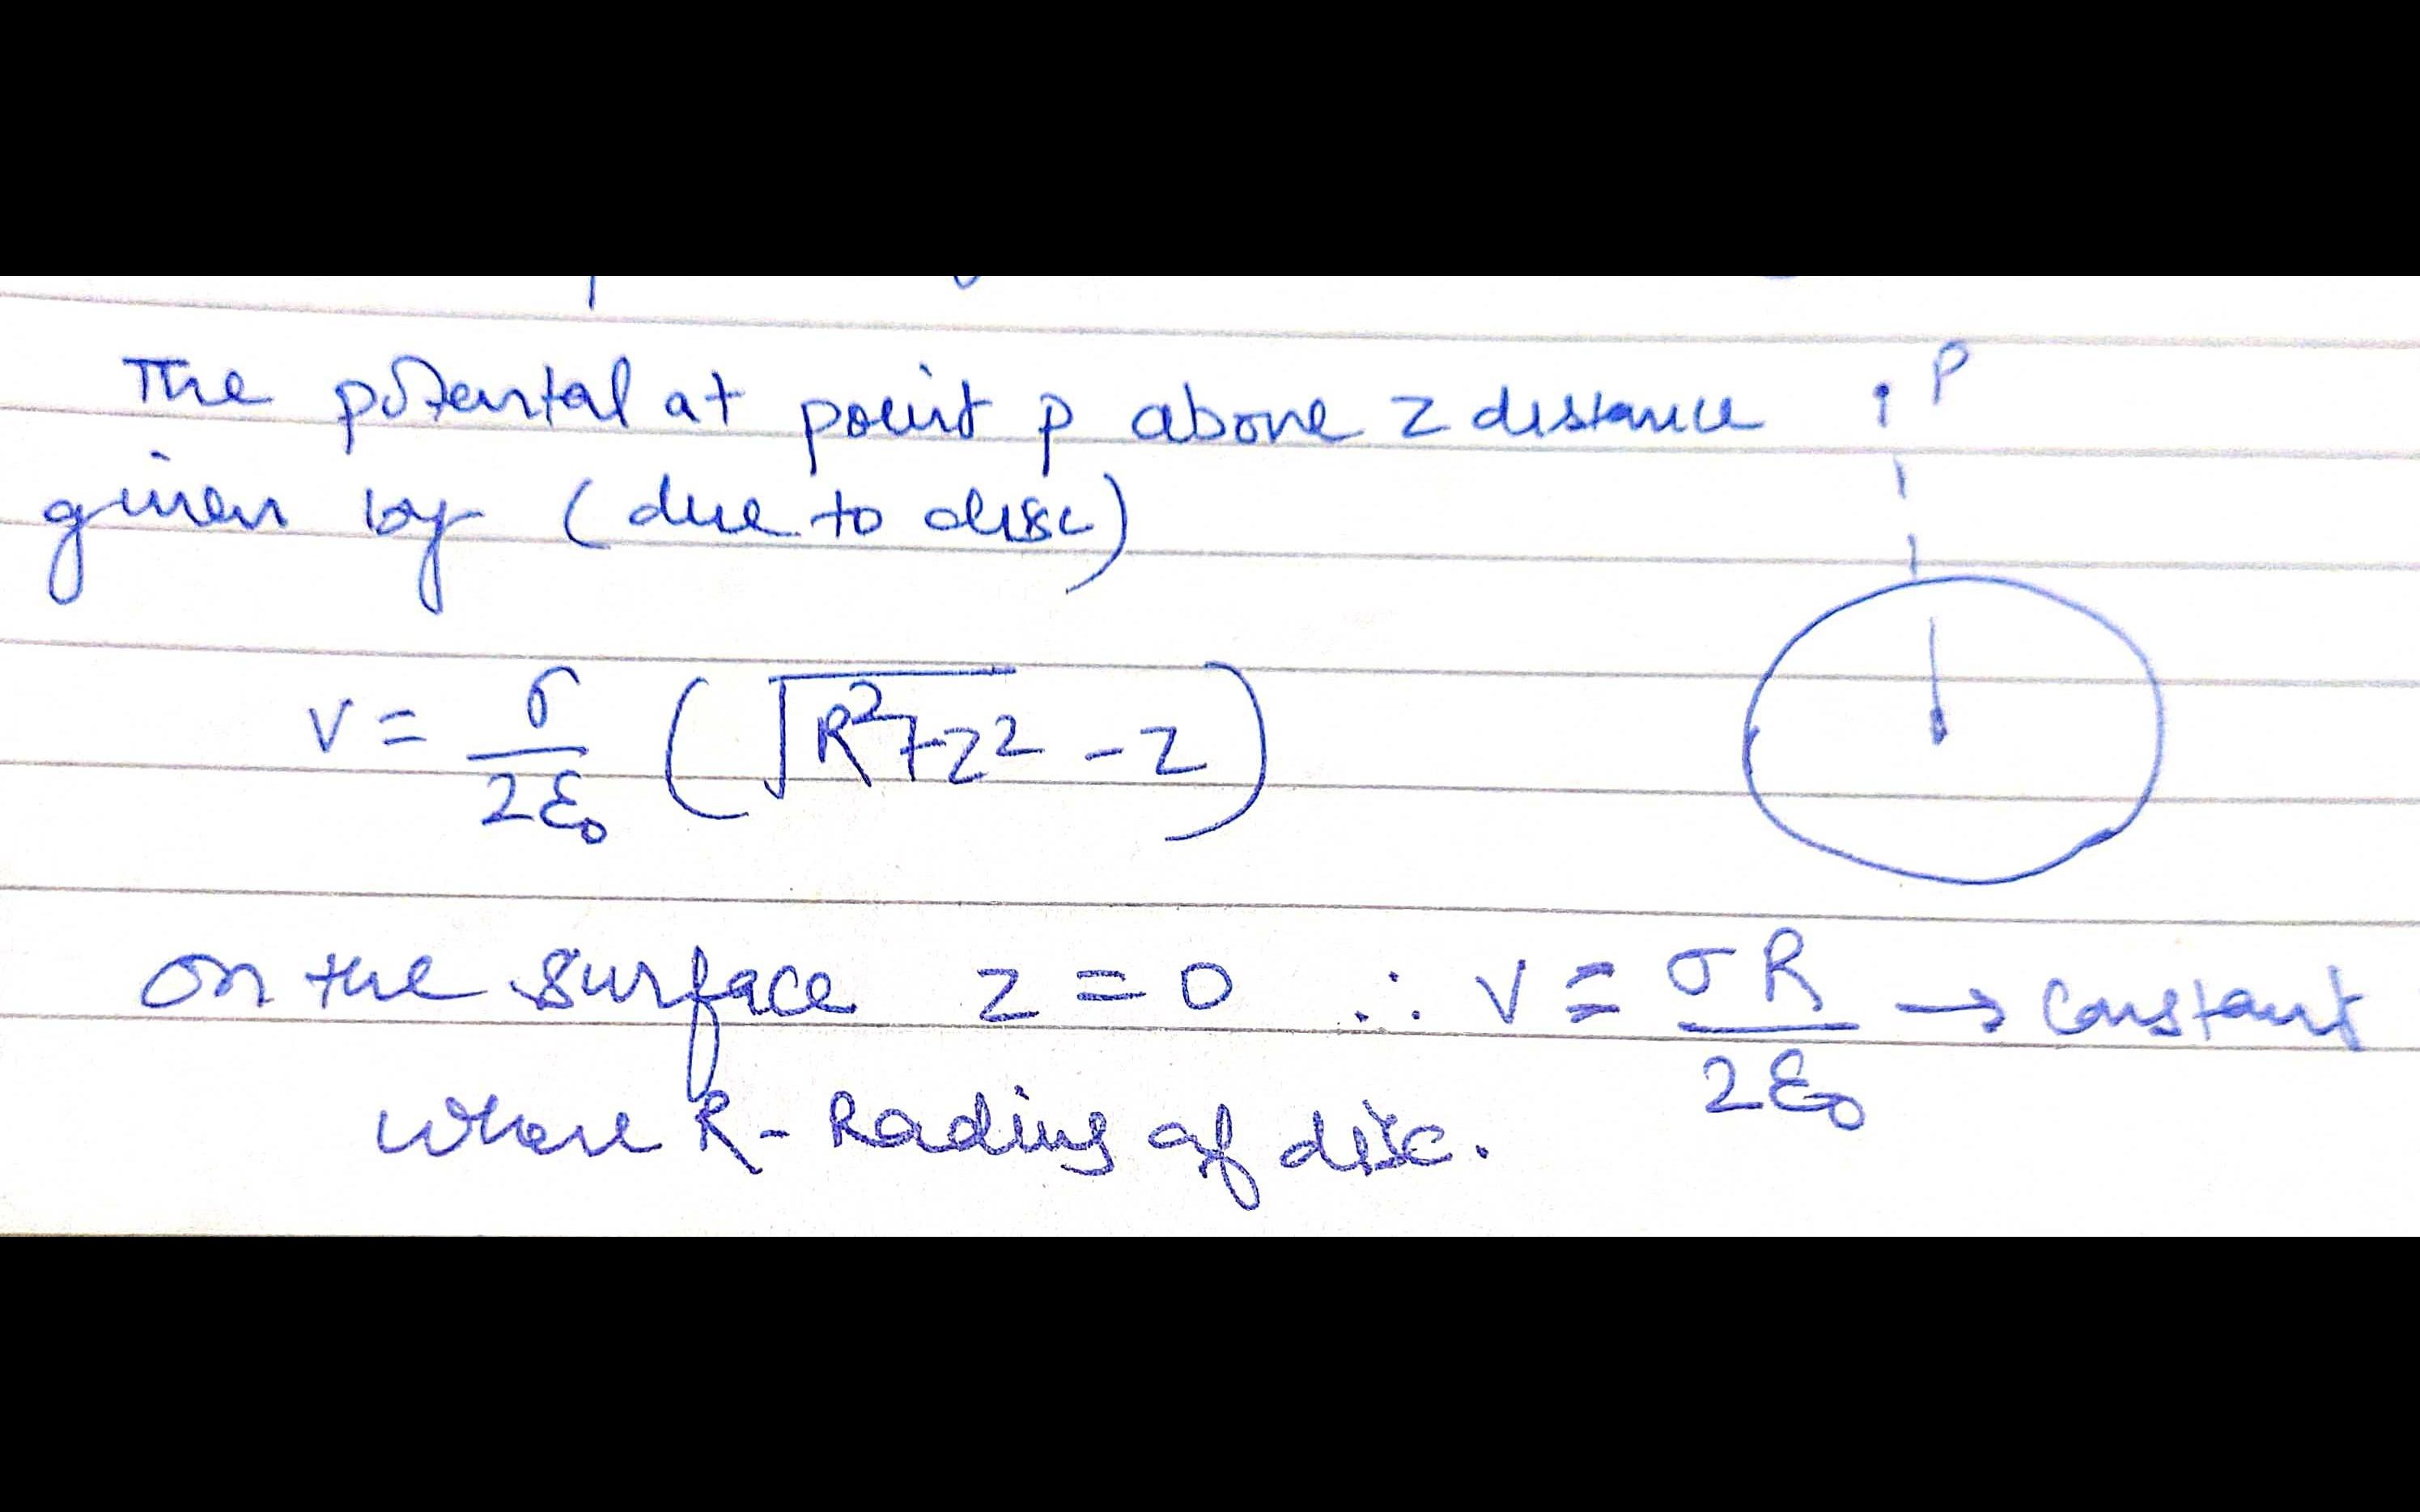 The potental at point p above z distance
P
given by (due to disc)
V = σ/2ε₀ (√R²+z² - z)
on the surface z = 0 ∴ V = σR/2ε₀ → constant
where R - Radius of disc.